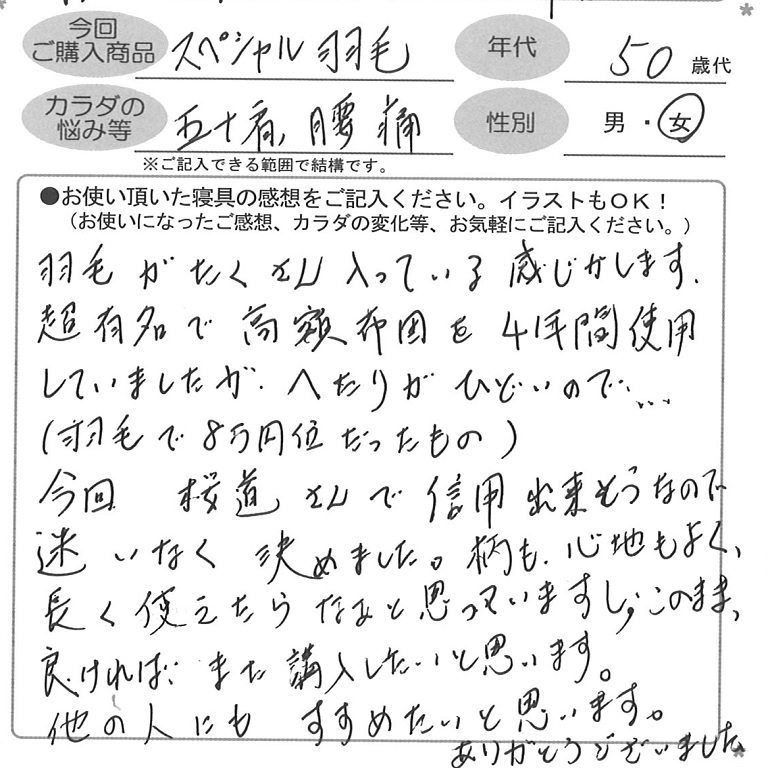 今回
ご購入商品
スペシャル羽毛
年代
50 歳代
カラダの
悩み等
五十肩、腰痛
性別
男・女
※ご記入できる範囲で結構です。
●お使い頂いた寝具の感想をご記入ください。イラストもOK！
（お使いになったご感想、カラダの変化等、お気軽にご記入ください。）
羽毛がたくさん入っている感じがします。
超有名で高額布団を4年間使用
していましたが、へたりがひどいので…
(羽毛で8万円位だったもの)
今回 桜道さんで信用出来そうなので
迷いなく決めました。柄も、心地もよく、
長く使えたらなぁと思っていますし、このまま、
良ければ、また講入したいと思います。
他の人にもすすめたいと思います。
ありがとうございました